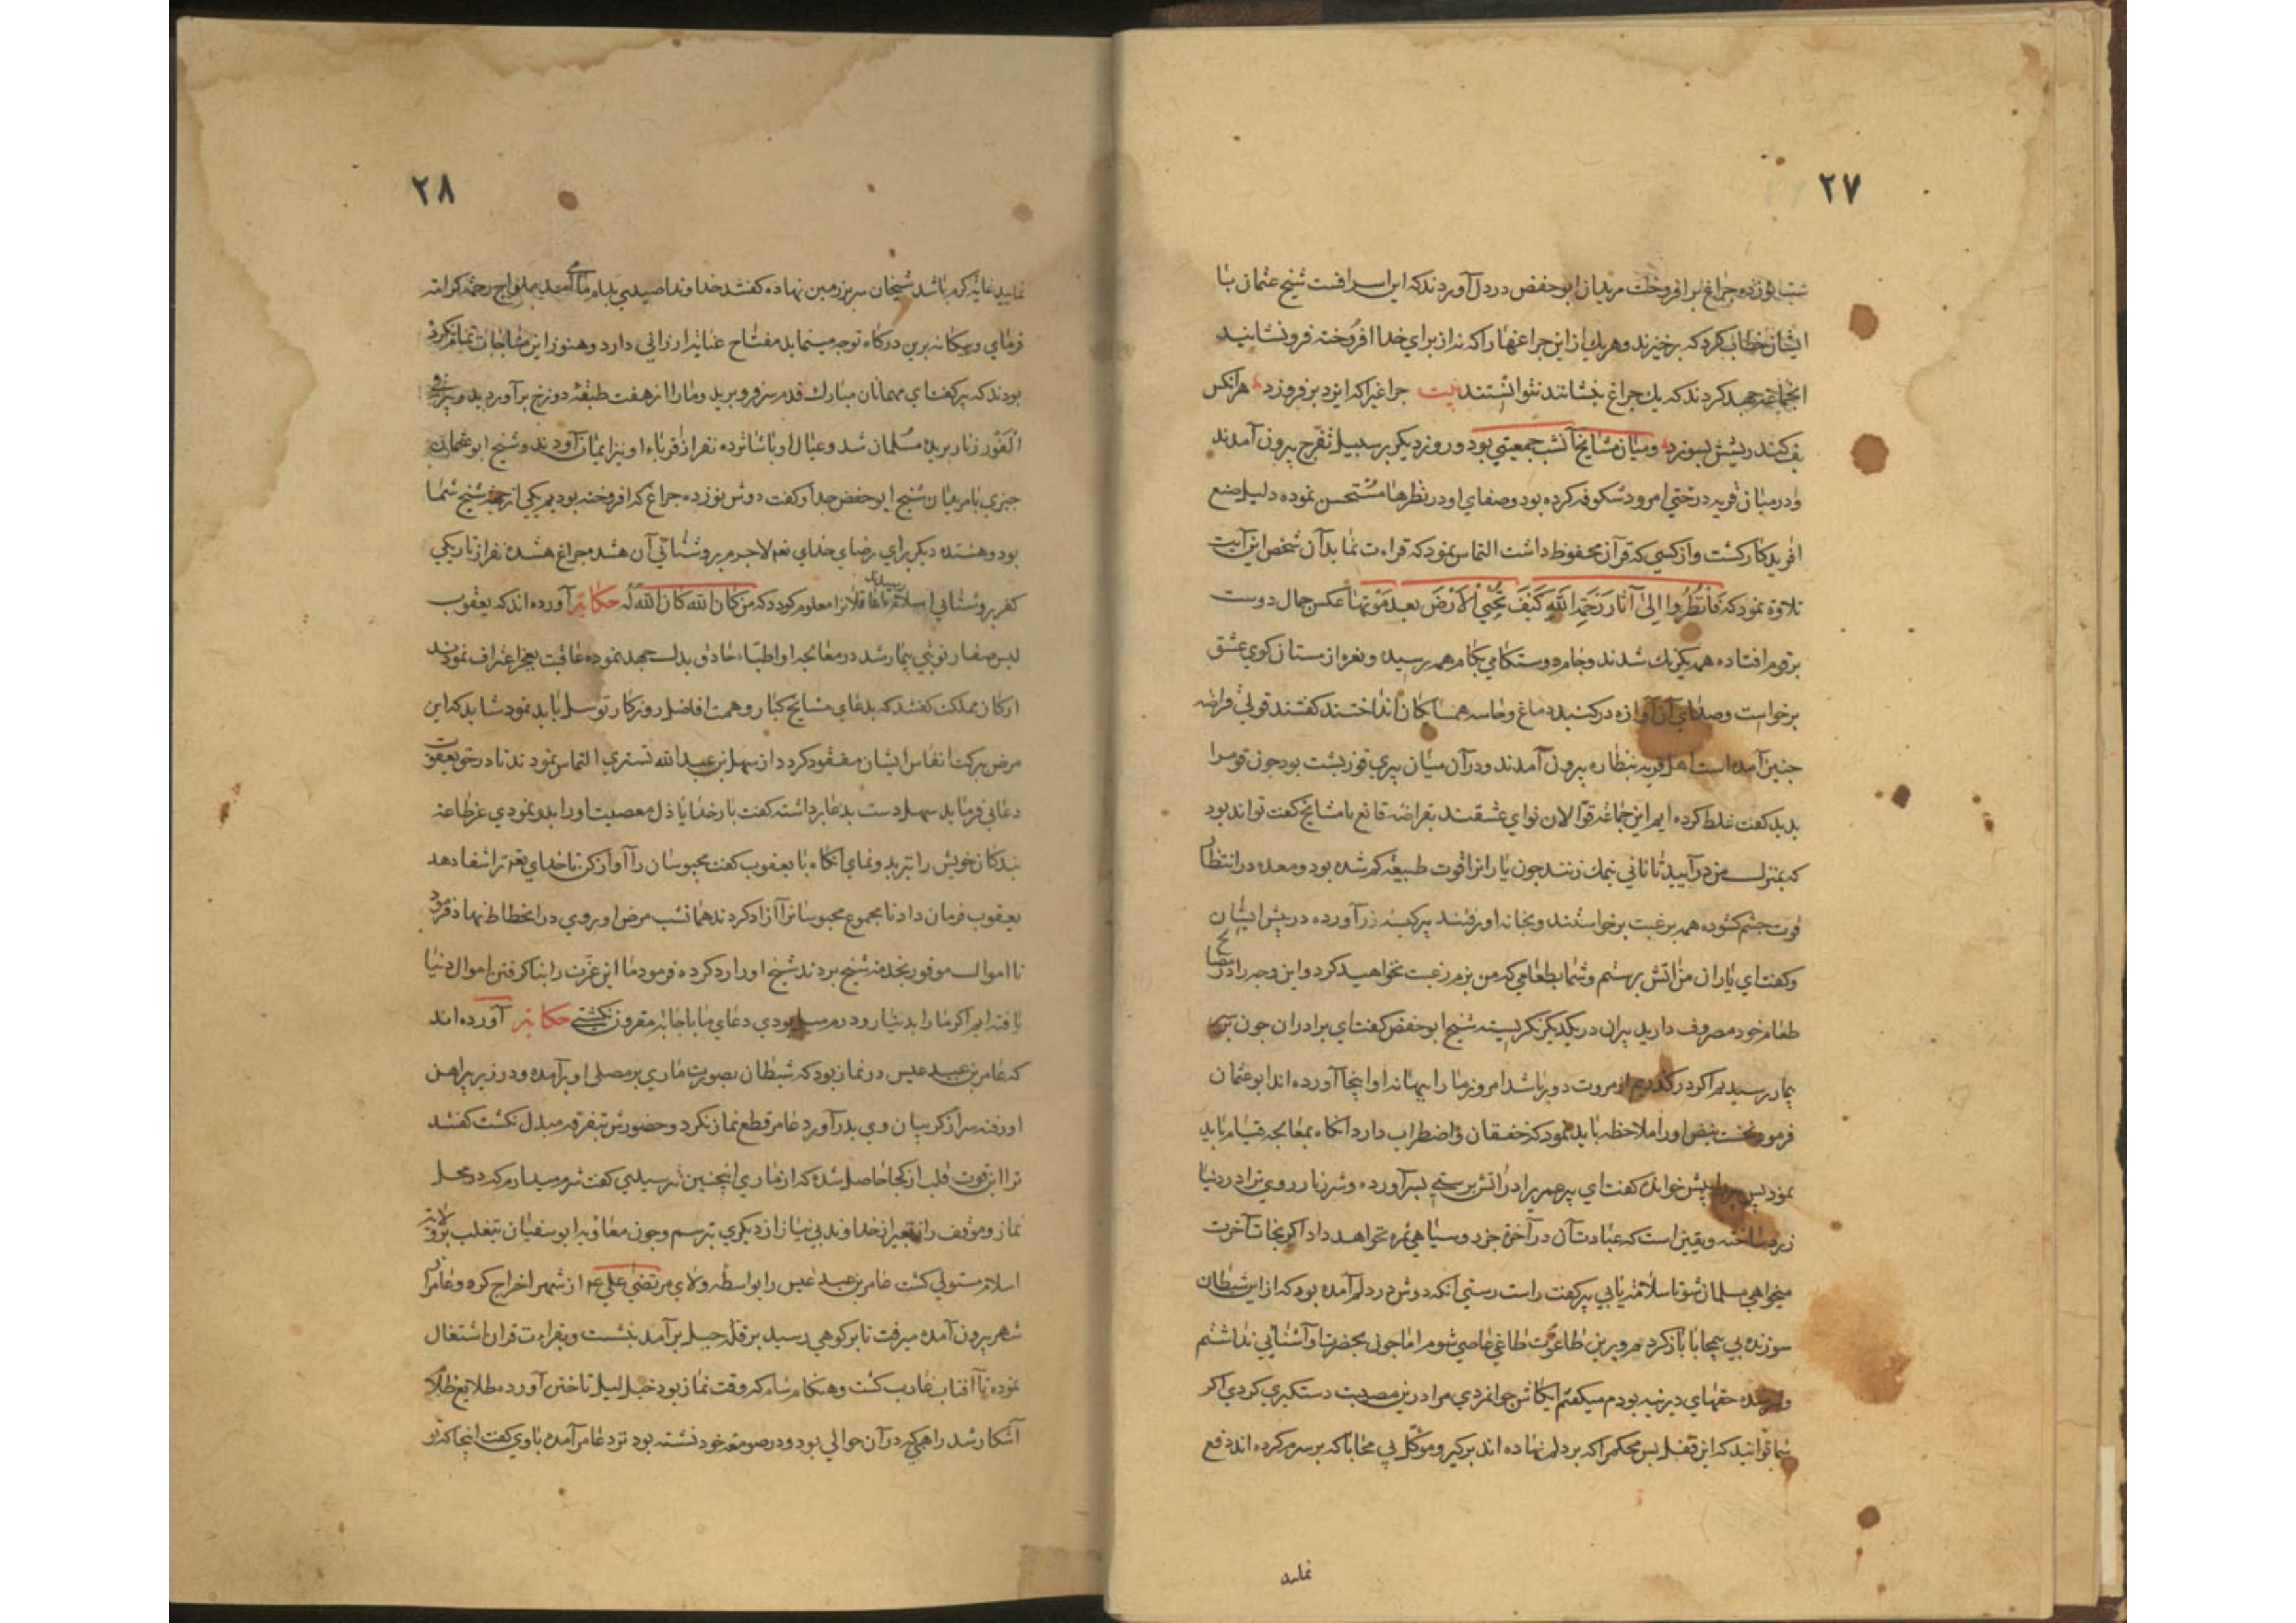 ۲۷
شب نوزده چراغ برافروخت مریدان ابوحفض در دل آوردند که این اسرافست شیخ عثمان با
ایشان خطاب کرد که برخیزند و هریک از این چراغها را که نه از برای خدا افروخته فرونشانید
جهد کردند که یک چراغ بنشانند نتوانستند بیت چراغیرا که ایزد برفروزد هر آنکس
پف کند ریشش بسوزد و میان مشایخ آنشب جمعیتی بود و روز دیگر بر سبیل تفرج بیرون آمدند
و در میان قریه درختی امرود شکوفه کرده بود و صفای او در نظرها مستحسن نموده دلیل صنع
آفریدکار کشت و از کسی که قرآن محفوظ داشت التماس نمود که قراءت نماید آن شخص این آیت
تلاوة نمود که فَانْظُرُوا اِلیٰ آثَارِ رَحْمَةِ اللهِ کَیْفَ یُحْیِي الْاَرْضَ بعد مَوْتِهَا عکس جمال دوست
برقوم افتاده همه یکرنک شدند و جام دوستکامی بکام همه رسید و نعره از مستان کوی عشق
برخواست و صدای آن آوازه در کنبد دماغ و حاسه همسایکان انداختند کفتند قولی فراخه
چنین آمده است اهل قریه بنظاره بیرون آمدند و در آن میان پیری قوزپشت بود چون قوم را
بدید کفت غلط کرده ایم این جماعة قوالان نوای عشقند بقراضه قانع با مشایخ کفت تواند بود
که بمنزل من درآیید تا نانی بنمک زنند چون یارانرا قوت طبیعة کم شده بود و معده در انتظار
قوت چشم کشوده همه برغبت برخواستند و بخانه او رفتند پیر کیسه زر آورده در پیش ایشان
و کفت ای یاران من آتش پرستم و شما بطعامی که من پزم رغبت نخواهید کرد و این وجه را در مصالح
طعام خود مصروف دارید پیران در یکدیکر نکریسته شیخ ابوحفض کفت ای برادران چون بسر
بیمار رسیدیم اکر در کذریم از مروت دور باشد امروز ما را ببهانه او اینجا آورده اند ابوعثمان
فرمود نخست نبض او را ملاحظه باید نمود که خفقان و اضطراب دارد آنکاه بمعالجه قیام باید
نمود پس پیر را پیش خوانده کفت ای پیر عمر را در آتش پرستی بسر آورده و شرر نار روی ترا در دنیا
زرد ساخته و یقین است که عبادت آن در آخرة جز رو سیاهی ثمره نخواهد داد اکر نجات آخرت
میخواهی مسلمان شو تا سلامة یابی پیر کفت راست رستی آنکه دوش در دلم آمده بود که از این شیطان
سوزنده بی محابا باز کردم و برین طاغوت طاغی عاصی شوم اما چون بحضرت او آشنائی نداشتم
حقهای دیرنیه بودم میکفتم ایکاش جوانمردی مرا درین مصیبت دستکیری کردی اکر
شما توانید که این قفل بس محکم را که بر دلم نهاده اند برکیر و موکل بی محابا که بر سرم کرده اند دفع
نماید
۲۸
نمایید غایة کرم باشد شیخان سر بر زمین نهاده کفتند خداوندا صیدی بدام ما آمد
فرمای و بیکانه برین درکاه توجه مینماید مفتاح عنایة ارزانی دارد و هنوز این مناجات تمام نکرده
بودند که پیر کفت ای مهمانان مبارک قدم سر فرو برید و مارا از هفت طبقة دوزخ برآورید و پیر فی
الفور زنار بریده مسلمان شد و عیال او با شانزده نفر از اقرباء او نیز ایمان آوردند و شیخ ابوعثمان
حیری با مریدان شیخ ابوحفض حداد کفت دوش نوزده چراغ که افروخته بودیم یکی از جهة شیخ شما
بود و هشده دیکر برای رضای خدای تعم لاجرم بروشنائی آن هشده چراغ هشده نفر از تاریکی
کفر بروشنایی اسلام رسیدند تا عاقلانرا معلوم کردد که من کان لله کان الله له حکایة آورده اند که یعقوب
لیس صفار نوبتی بیمار شد در معالجه او اطباء حاذق بذل جهد نموده عاقبت بعجز اعتراف نمودند
ارکان مملکت کفتند که بدعای مشایخ کبار و همت افاضل روزکار توسل باید نمود شاید که این
مرض ببرکت انفاس ایشان مفقود کردد از سهل بن عبدالله تستری التماس نمودند تا در حق یعقوب
دعائی فرماید سهل دست بدعا برداشته کفت بارخدایا ذل معصیت او را بدو نمودی عز طاعة
بندکان خویش را نیز بدو نمای آنکاه با یعقوب کفت محبوسان را آزاد کن تا خدای تعم ترا شفا دهد
یعقوب فرمان داد تا مجموع محبوسانرا آزاد کردند همانشب مرض او روی در انحطاط نهاد فرمود
تا اموال موفور بخدمة شیخ بردند شیخ او را رد کرده فرمود ما این عزت را بناکرفتن اموال دنیا
یافته ایم اکر ما را بدینار و درم میل بودی دعای ما باجابة مقرون نکشتی حکایة آورده اند
که عامر بن عبد عیس در نماز بود که شیطان بصورت ماری بر مصلی او برآمده و در زیر پیراهن
او رفته سر از کریبان وی بدر آورد عامر قطع نماز نکرد و حضورش بتفرقه مبدل نکشت کفتند
ترا این قوت قلب از کجا حاصل شده که از ماری اینچنین نترسیدی کفت شرم میدارم که در محل
نماز و موقف راز بغیر از خداوند بی نیاز از دیکری بترسم و چون معاویه ابوسفیان بتغلب بر ولایة
اسلام مستولی کشت عامر بن عبد عیس را بواسطه ولای مرتضی علی ع م از شهر اخراج کرد و عامر از
شهر بیرون آمده میرفت تا برکوهی رسید بر قلّه جبل برآمد بنشست و بقراءت قرآن اشتغال
نموده تا آفتاب غارب کشت و هنکام شام که وقت نماز بود خیل لیل تاختن آورده طلایع ظلام
آشکار شد راهبی که در آن حوالی بود و در صومعه خود نشسته بود نزد عامر آمده باوی کفت اینجا که تو